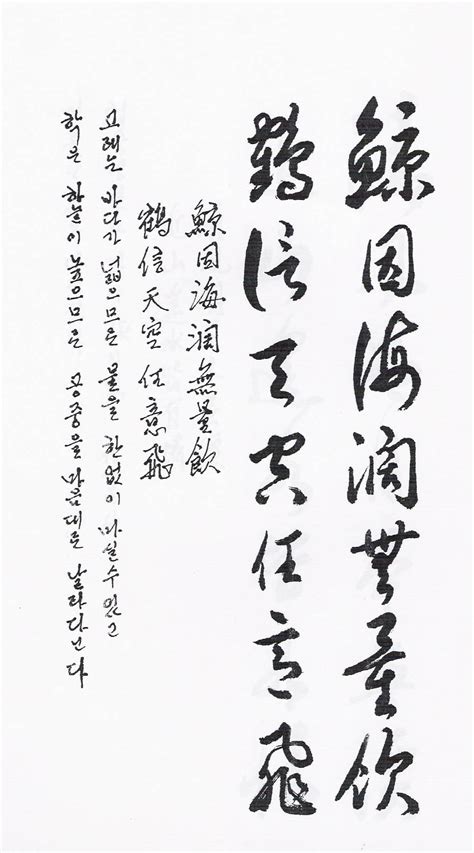 鯨因海濶無量飮
鶴信天空任意飛
鯨因海濶無量飮
鶴信天空任意飛
고래는 바다가 넓으므로 물을 한없이 마실수있고
학은 하늘이 높으므로 공중을 마음대로 날라다닌다